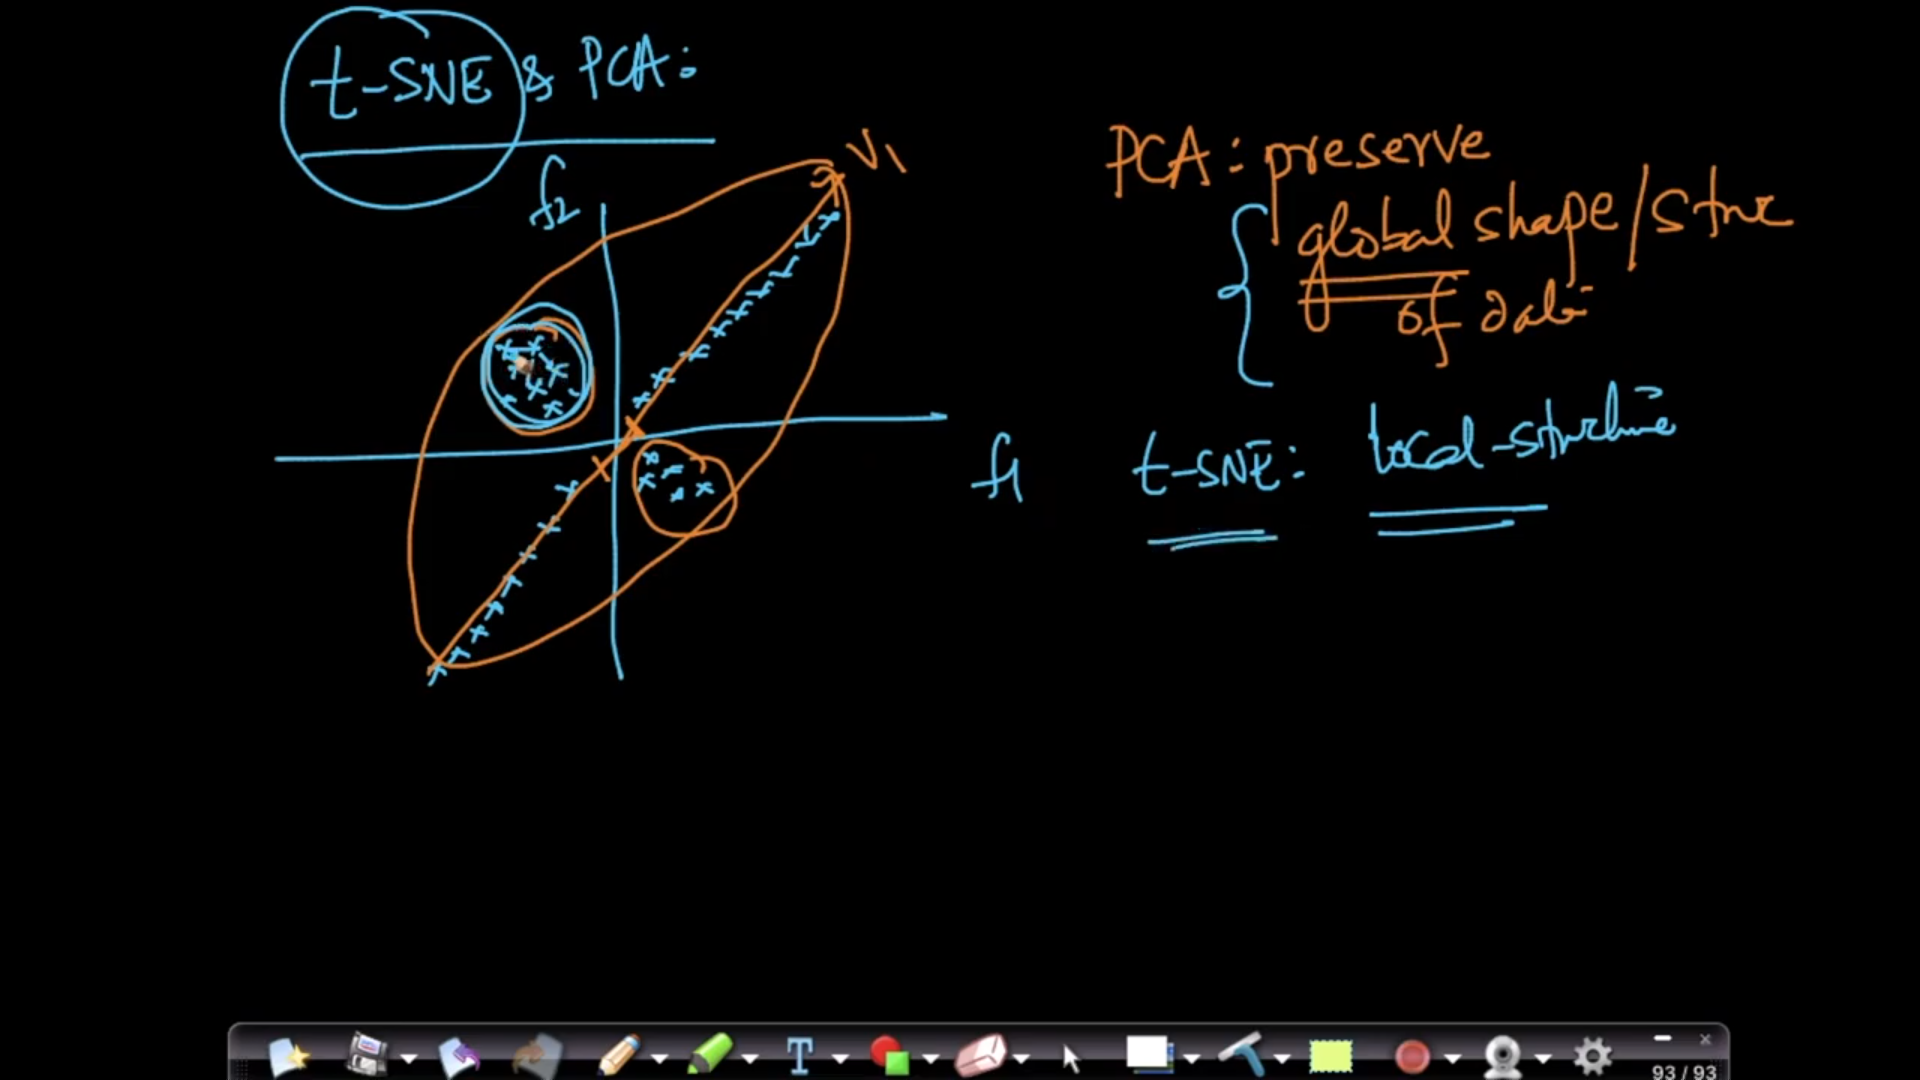 t-SNE & PCA:
f2
V1
PCA: preserve
global shape/struc
of data
f1
t-SNE: local-structure
T
93 / 93